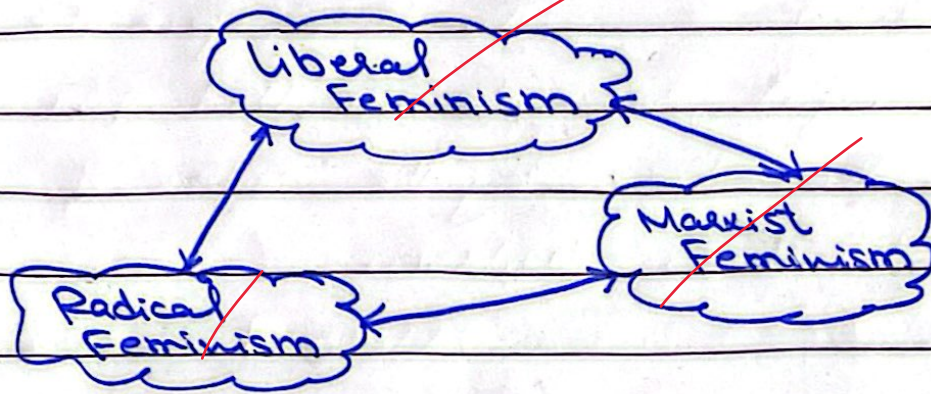 Liberal
Feminism
Marxist
Feminism
Radical
Feminism